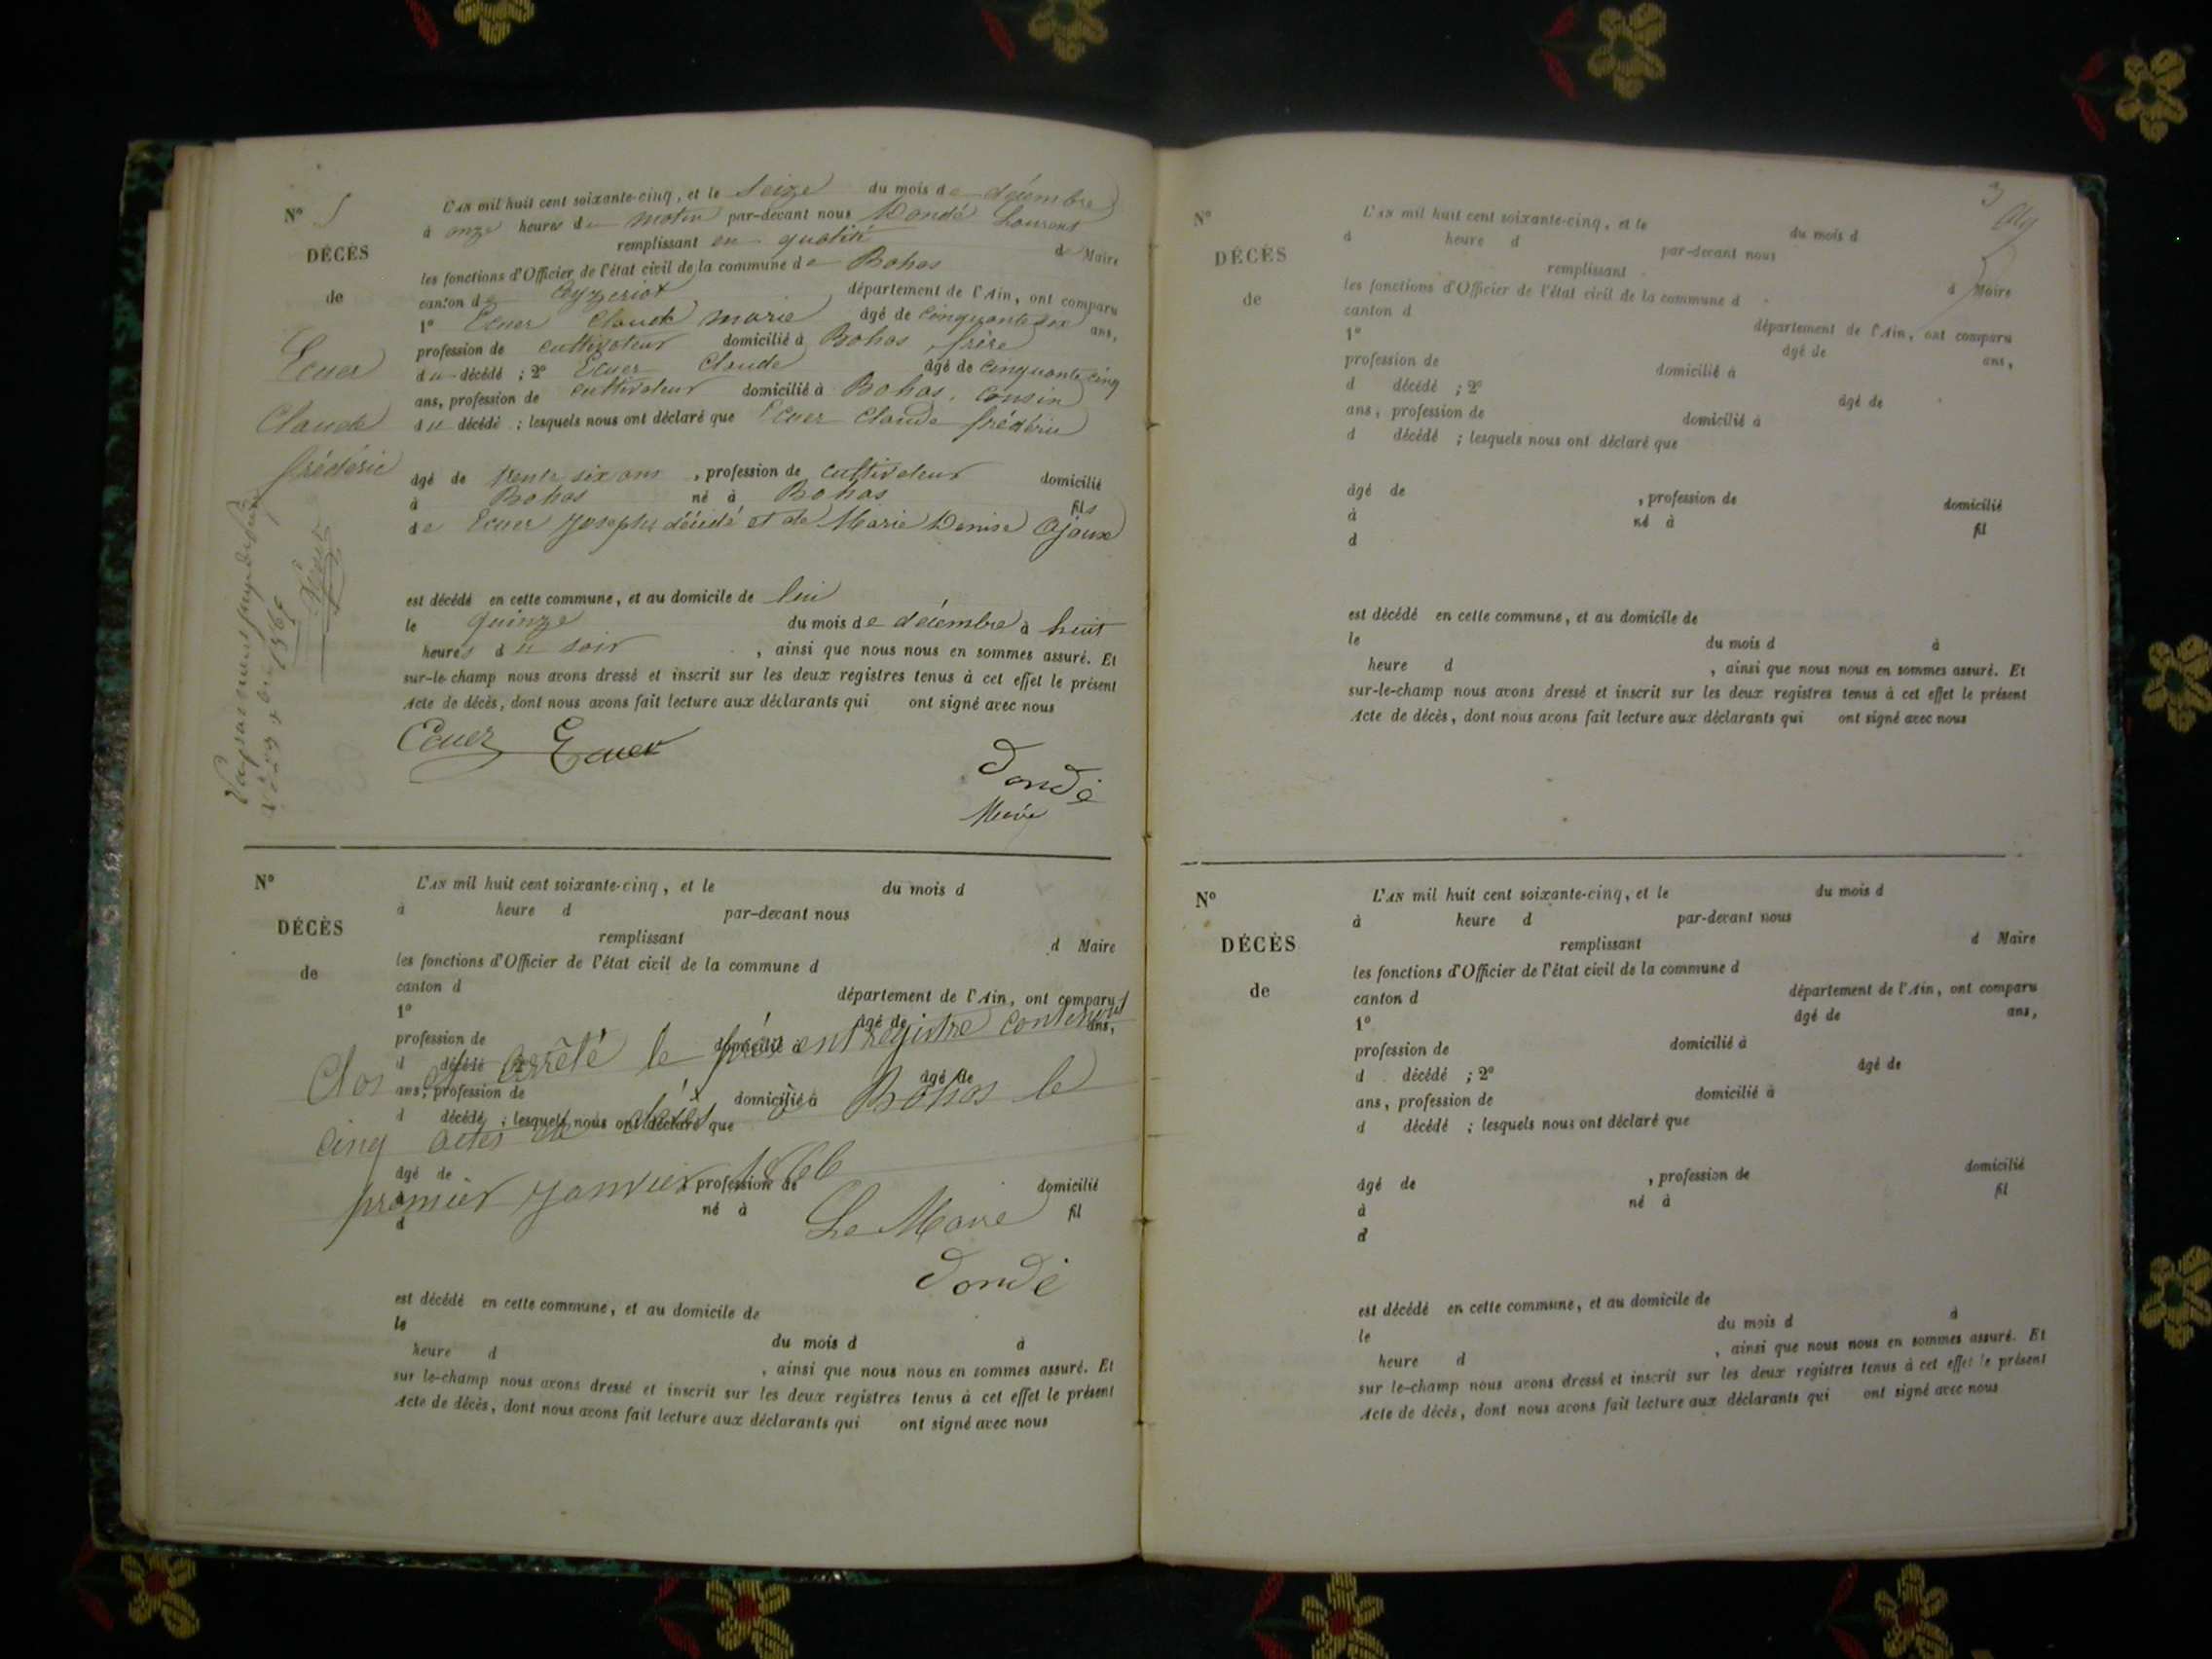 N° 5
DÉCÈS
de
Ecuer
Claude
frédéric
L'AN mil huit cent soixante-cinq, et le Seize du mois de décembre
à onze heures du matin par-devant nous Dondé
remplissant en qualité de Maire
les fonctions d'Officier de l'état civil de la commune de Bohas
canton de Ceyzeriat département de l'Ain, ont comparu
1° Ecuer Claude marie âgé de Cinquante six ans,
profession de cultivateur domicilié à Bohas, frère
du décédé ; 2° Ecuer Claude âgé de cinquante cinq
ans, profession de cultivateur domicilié à Bohas, Cousin
du décédé ; lesquels nous ont déclaré que Ecuer Claude frédéric
âgé de trente six ans, profession de cultivateur domicilié
à Bohas né à Bohas fils
de Ecuer Joseph décédé et de Marie Denise Ajoux
est décédé en cette commune, et au domicile de lui
le quinze du mois de décembre à huit
heures du soir, ainsi que nous nous en sommes assuré. Et
sur-le-champ nous avons dressé et inscrit sur les deux registres tenus à cet effet le présent
Acte de décès, dont nous avons fait lecture aux déclarants qui ont signé avec nous
Ecuer Ecuer
Dondé
Maire
N°
DÉCÈS
de
L'AN mil huit cent soixante-cinq, et le du mois d
à heure d par-devant nous
remplissant d Maire
les fonctions d'Officier de l'état civil de la commune d
canton d département de l'Ain, ont comparu
1° âgé de ans,
profession de domicilié à
d décédé ; 2° âgé de
ans, profession de domicilié à
d décédé ; lesquels nous ont déclaré que
Clos et arrêté le présent registre contenant
cinq actes de décès à Bohas le
premier janvier 1866
Le Maire
Dondé
âgé de , profession de domicilié
à né à fil
d
est décédé en cette commune, et au domicile de
le du mois d à
heure d , ainsi que nous nous en sommes assuré. Et
sur le-champ nous avons dressé et inscrit sur les deux registres tenus à cet effet le présent
Acte de décès, dont nous avons fait lecture aux déclarants qui ont signé avec nous
3
N°
DÉCÈS
de
L'AN mil huit cent soixante-cinq, et le du mois d
à heure d par-devant nous
remplissant d Maire
les fonctions d'Officier de l'état civil de la commune d
canton d département de l'Ain, ont comparu
1° âgé de ans,
profession de domicilié à
d décédé ; 2° âgé de
ans, profession de domicilié à
d décédé ; lesquels nous ont déclaré que
âgé de , profession de domicilié
à né à fil
d
est décédé en cette commune, et au domicile de
le du mois d à
heure d , ainsi que nous nous en sommes assuré. Et
sur-le-champ nous avons dressé et inscrit sur les deux registres tenus à cet effet le présent
Acte de décès, dont nous avons fait lecture aux déclarants qui ont signé avec nous
N°
DÉCÈS
de
L'AN mil huit cent soixante-cinq, et le du mois d
à heure d par-devant nous
remplissant d Maire
les fonctions d'Officier de l'état civil de la commune d
canton d département de l'Ain, ont comparu
1° âgé de ans,
profession de domicilié à
d décédé ; 2° âgé de
ans, profession de domicilié à
d décédé ; lesquels nous ont déclaré que
âgé de , profession de domicilié
à né à fil
d
est décédé en cette commune, et au domicile de
le du mois d à
heure d , ainsi que nous nous en sommes assuré. Et
sur le-champ nous avons dressé et inscrit sur les deux registres tenus à cet effet le présent
Acte de décès, dont nous avons fait lecture aux déclarants qui ont signé avec nous